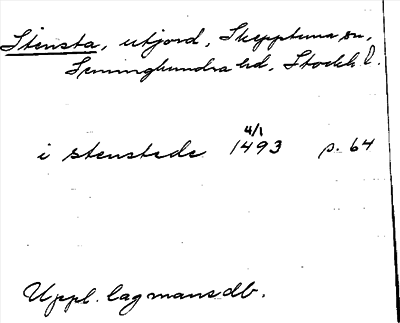 Stensta, utjord, Skepptuna sn,
Seminghundra hd, Stockh. l.
i stenstede 4/1 1493 p. 64
Uppl. lagmansdb.